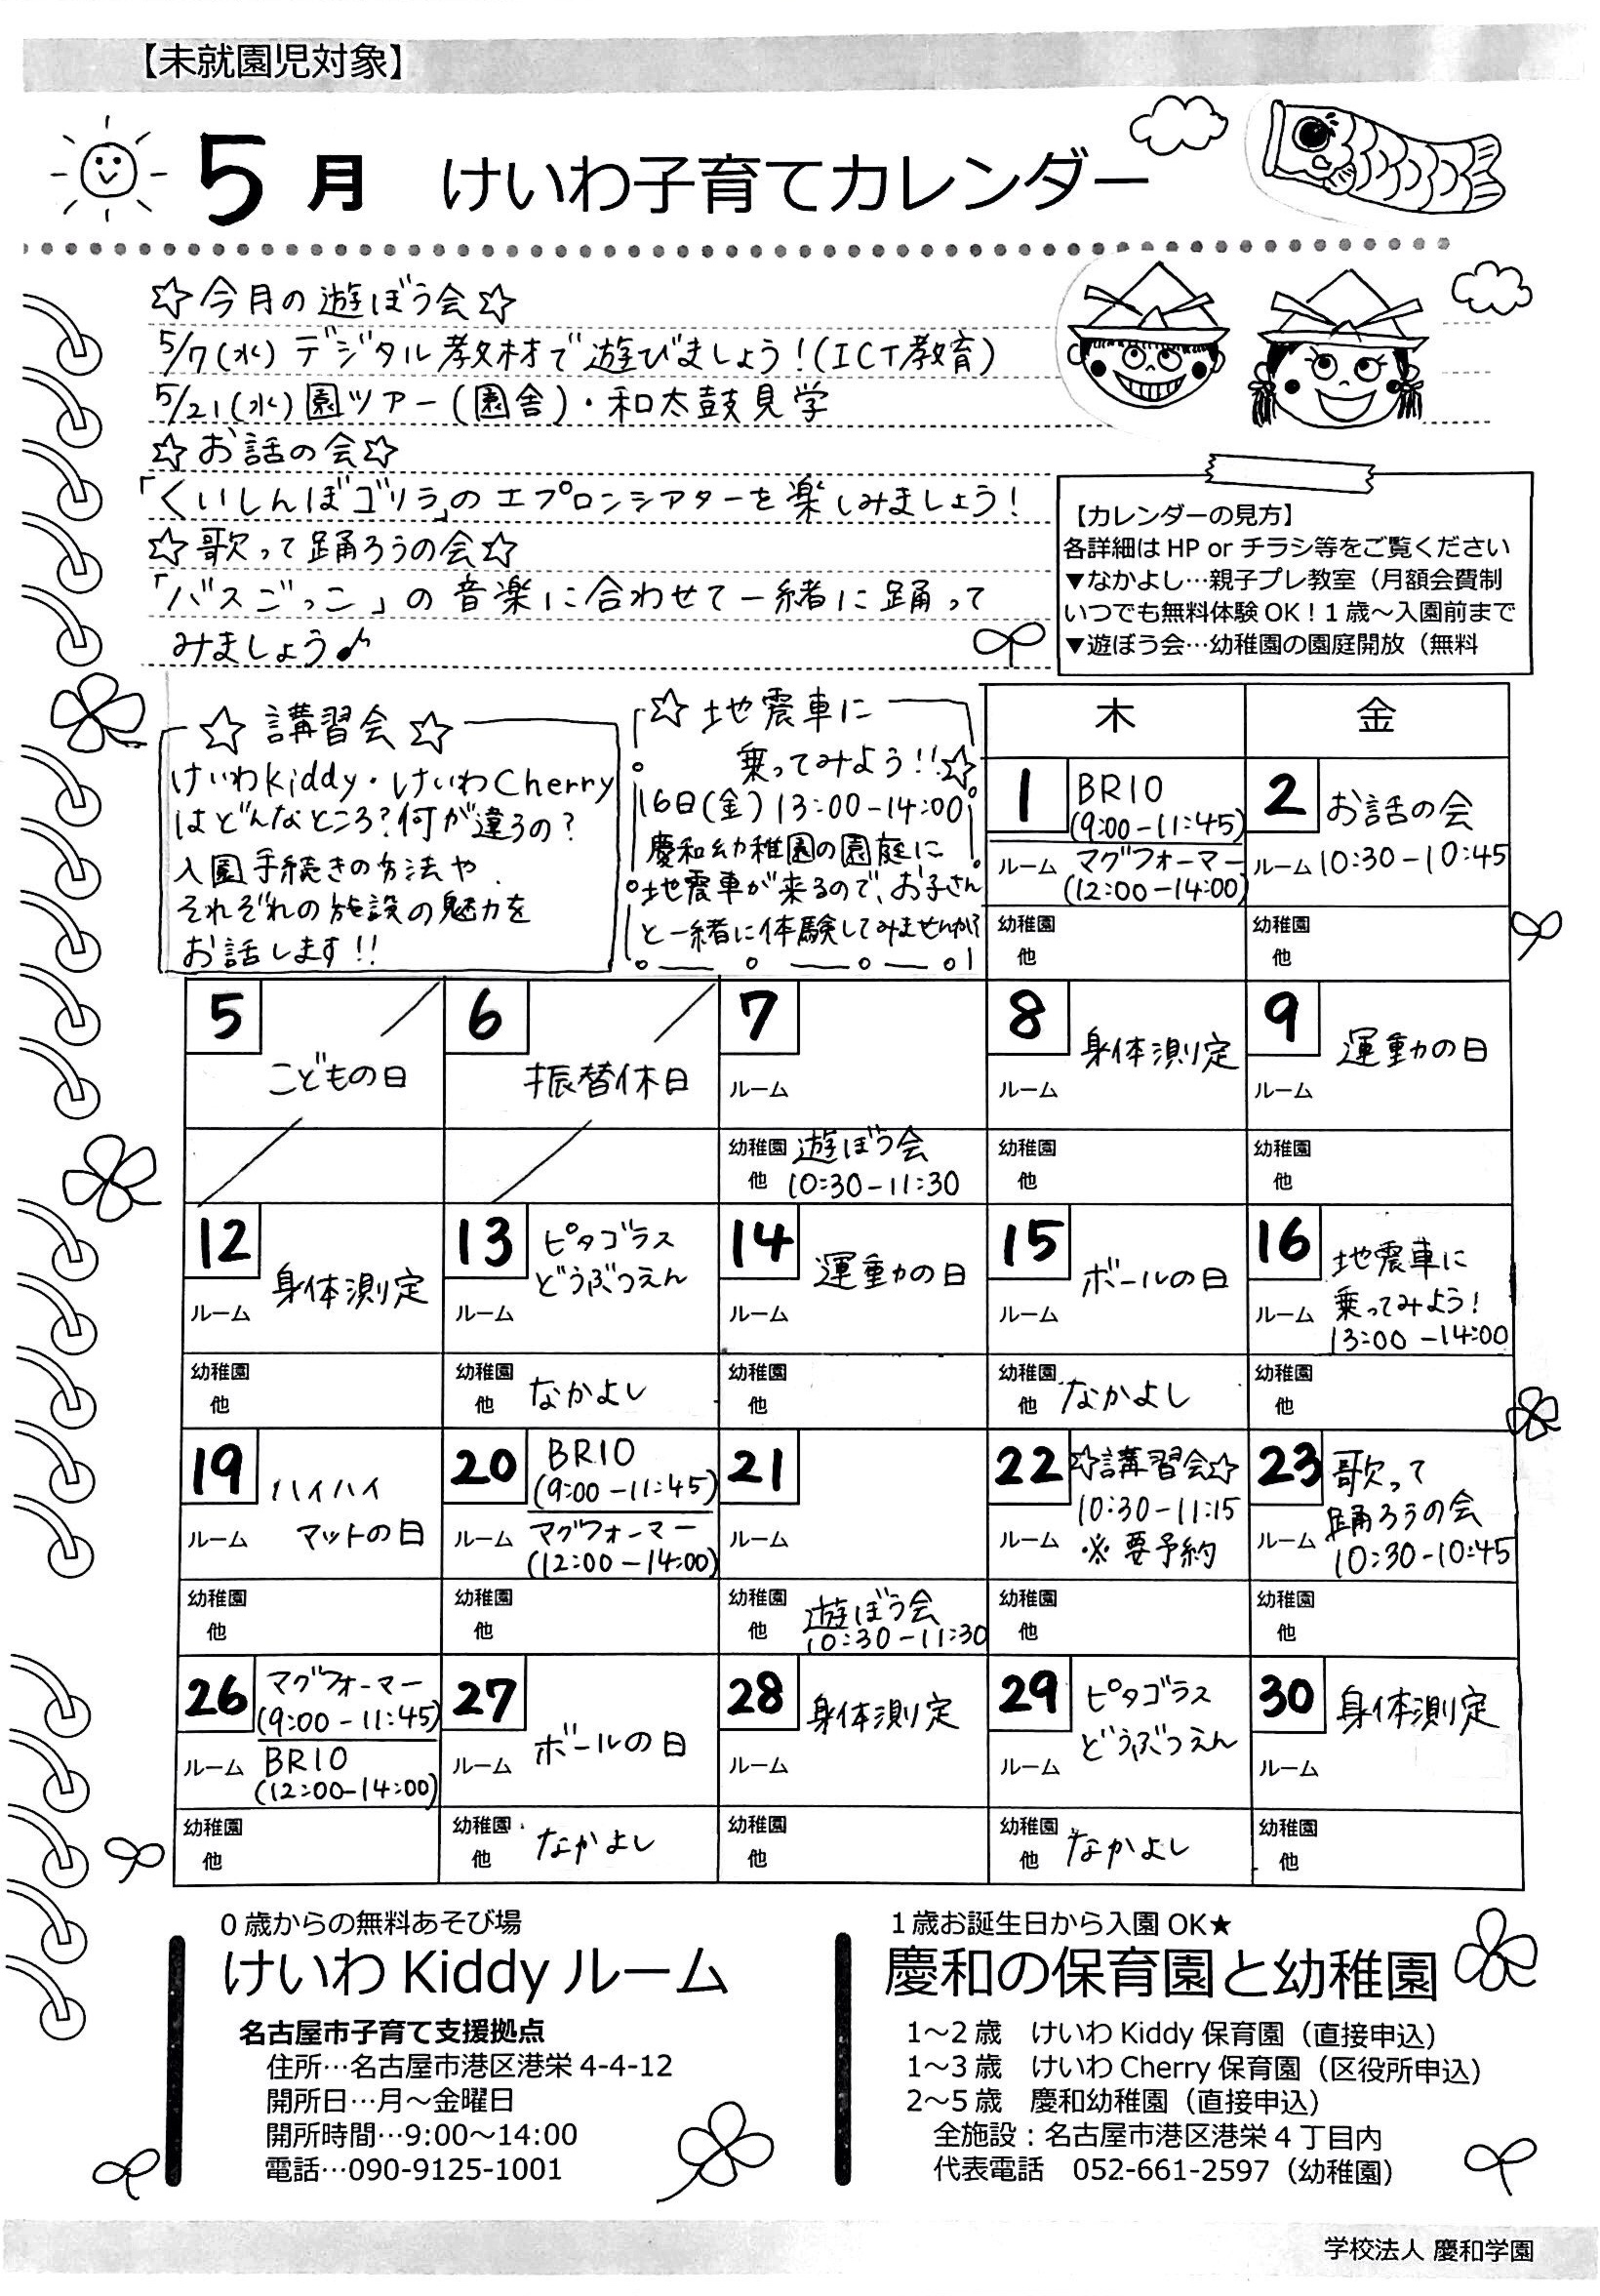 【未就園児対象】
5月 けいわ子育てカレンダー
☆今月の遊ぼう会☆
5/7(水) デジタル教材で遊びましょう!(ICT教育)
5/21(水)園ツアー(園舎)・和太鼓見学
☆お話の会☆
「くいしんぼゴリラ」のエプロンシアターを楽しみましょう!
☆歌って踊ろうの会☆
「バスごっこ」の音楽に合わせて一緒に踊って
みましょう♪
【カレンダーの見方】
各詳細は HP or チラシ等をご覧ください
▼なかよし…親子プレ教室(月額会費制
いつでも無料体験 OK!1 歳～入園前まで
▼遊ぼう会…幼稚園の園庭開放(無料
☆ 講習会 ☆
けいわkiddy・けいわCherry
はどんなところ?何が違うの?
入園手続きの方法や
それぞれの施設の魅力を
お話します!!
☆地震車に
乗ってみよう!!☆
16日(金)13:00-14:00
慶和幼稚園の園庭に
地震車が来るので、お子さん
と一緒に体験してみませんか?
木
金
1
BRIO
(9:00-11:45)
ルーム
マグフォーマー
(12:00-14:00)
幼稚園
他
2
お話の会
ルーム
10:30-10:45
幼稚園
他
5
こどもの日
6
振替休日
7
ルーム
幼稚園
他
遊ぼう会
10:30-11:30
8
身体測定
ルーム
幼稚園
他
9
運動の日
ルーム
幼稚園
他
12
身体測定
ルーム
幼稚園
他
13
ピタゴラス
どうぶつえん
ルーム
幼稚園
他
なかよし
14
運動の日
ルーム
幼稚園
他
15
ボールの日
ルーム
幼稚園
他
なかよし
16
地震車に
乗ってみよう!
13:00-14:00
ルーム
幼稚園
他
19
ハイハイ
マットの日
ルーム
幼稚園
他
20
BRIO
(9:00-11:45)
ルーム
マグフォーマー
(12:00-14:00)
幼稚園
他
21
ルーム
幼稚園
他
遊ぼう会
10:30-11:30
22
☆講習会☆
10:30-11:15
※要予約
ルーム
幼稚園
他
23
歌って
踊ろうの会
10:30-10:45
ルーム
幼稚園
他
26
マグフォーマー
(9:00-11:45)
ルーム
BRIO
(12:00-14:00)
幼稚園
他
27
ボールの日
ルーム
幼稚園
他
なかよし
28
身体測定
ルーム
幼稚園
他
29
ピタゴラス
どうぶつえん
ルーム
幼稚園
他
なかよし
30
身体測定
ルーム
幼稚園
他
0 歳からの無料あそび場
けいわ Kiddy ルーム
名古屋市子育て支援拠点
住所…名古屋市港区港栄 4-4-12
開所日…月～金曜日
開所時間…9:00～14:00
電話…090-9125-1001
1 歳お誕生日から入園 OK★
慶和の保育園と幼稚園
1～2 歳 けいわ Kiddy 保育園(直接申込)
1～3 歳 けいわ Cherry 保育園(区役所申込)
2～5 歳 慶和幼稚園(直接申込)
全施設:名古屋市港区港栄 4 丁目内
代表電話 052-661-2597(幼稚園)
学校法人 慶和学園